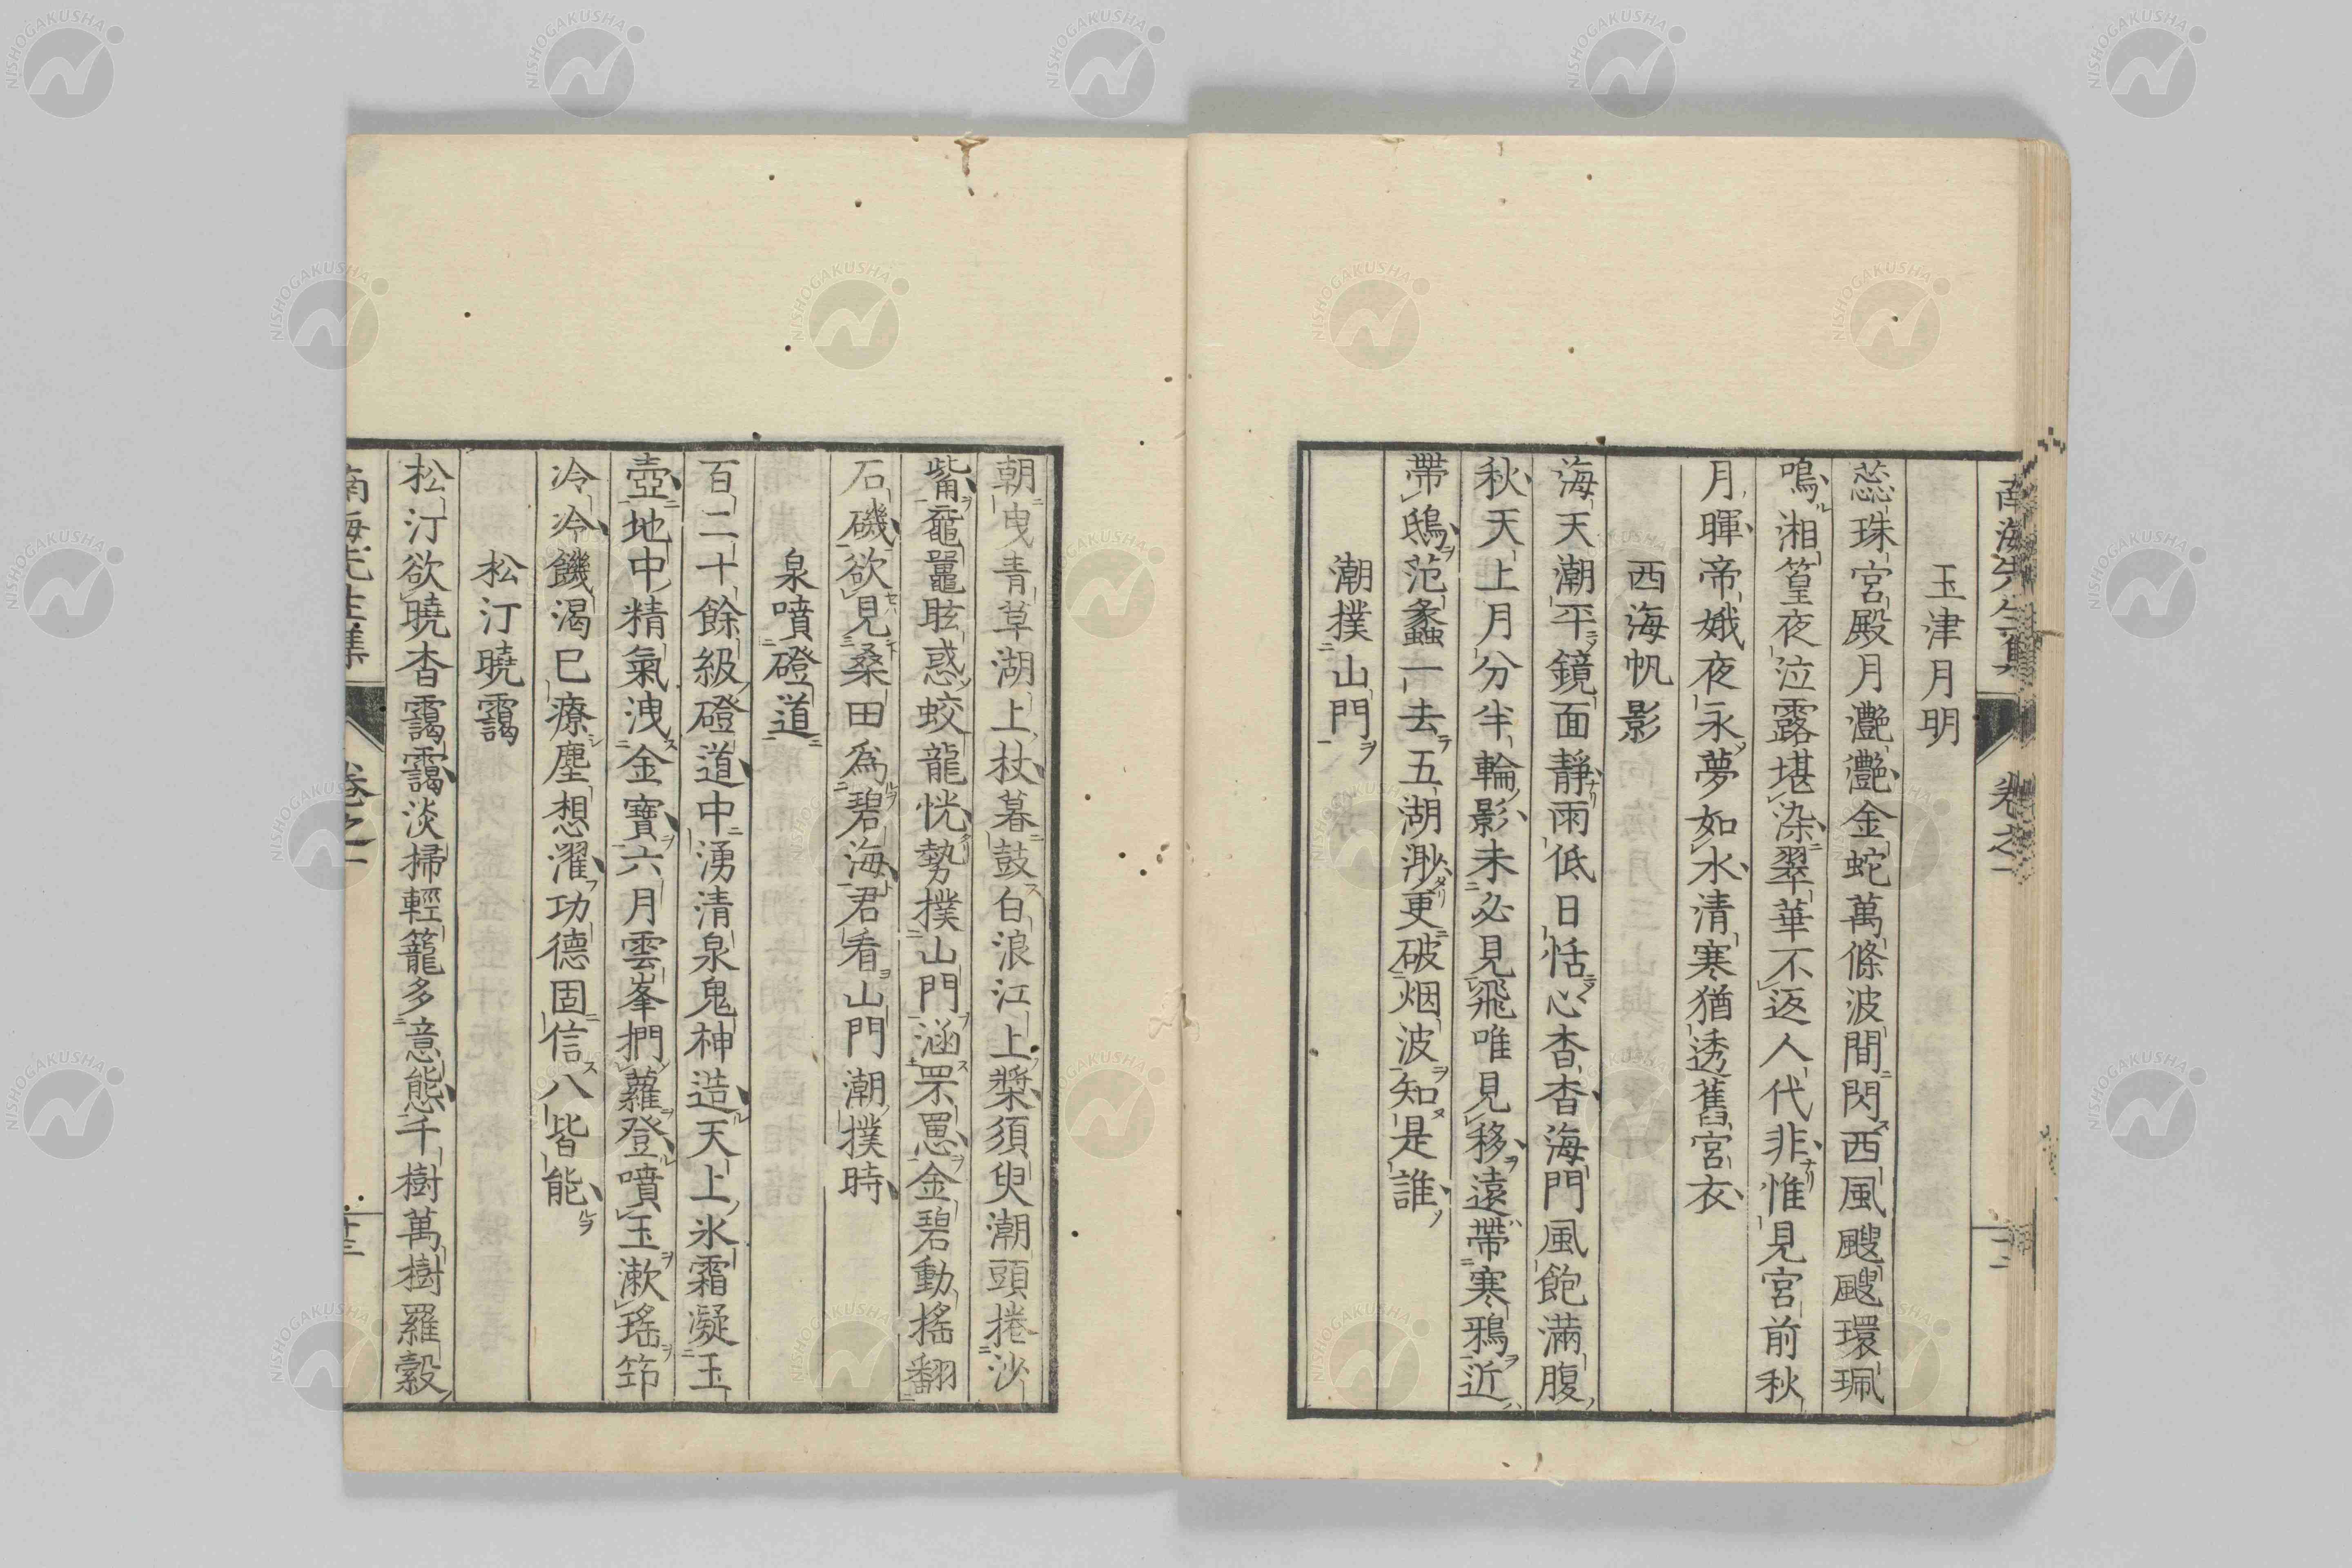 南海先生集 卷之一 十二
玉津月明
蕊珠宮殿月灩灩金蛇萬條波間閃西風颼颼環珮
鳴湘篁夜泣露堪染翠華不返人代非惟見宮前秋
月暉帝娥夜永夢如水清寒猶透舊宮衣
西海帆影
海天潮平鏡面靜雨低日恬心杳杳海門風飽滿腹
秋天上月分半輪影未必見飛唯見移遠帶寒鴉近
帶鴟范蠡一去五湖渺更破烟波知是誰
潮撲山門
朝曳青草湖上杖暮鼓白浪江上槳須臾潮頭捲沙
觜黿鼉眩惑蛟龍恍勢撲山門涵罘罳金碧動搖翻
石磯欲見桑田爲碧海君看山門潮撲時
泉噴磴道
百二十餘級磴道中湧清泉鬼神造天上氷霜凝玉
壺地中精氣洩金寶六月雲峯捫蘿登噴玉漱瑤筇
冷冷饑渴已療塵想濯功德固信八皆能
松汀曉靄
松汀欲曉杳靄靄淡掃輕籠多意態千樹萬樹羅縠
南海先生集 卷之一 十三
NISHOGAKUSHA